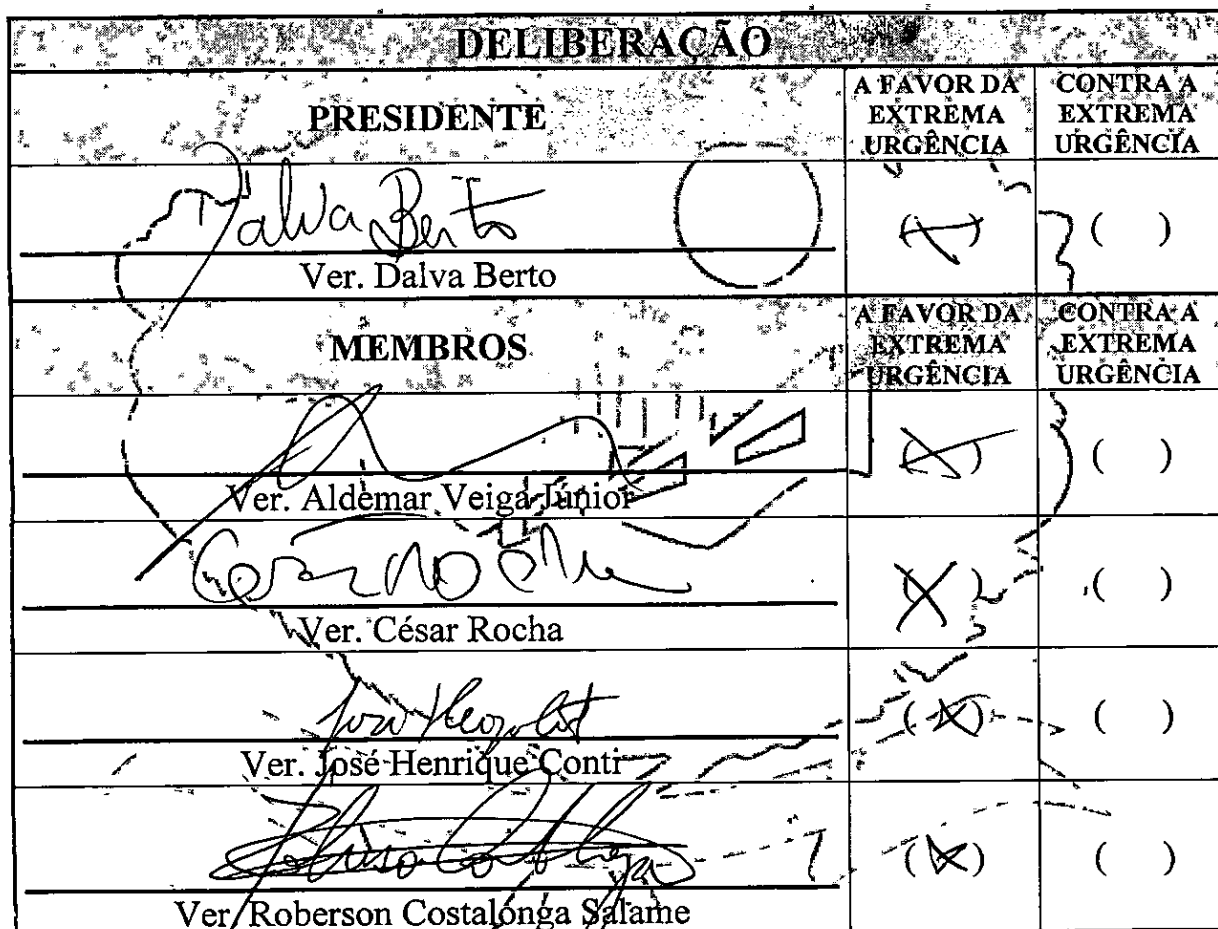 DELIBERAÇÃO
PRESIDENTE
A FAVOR DA EXTREMA URGÊNCIA
CONTRA A EXTREMA URGÊNCIA
Dalva Berto
(X)
( )
Ver. Dalva Berto
MEMBROS
A FAVOR DA EXTREMA URGÊNCIA
CONTRA A EXTREMA URGÊNCIA
(X)
( )
Ver. Aldemar Veiga Júnior
(X)
( )
Ver. César Rocha
(X)
( )
Ver. José Henrique Conti
(X)
( )
Ver. Roberson Costalonga Salame